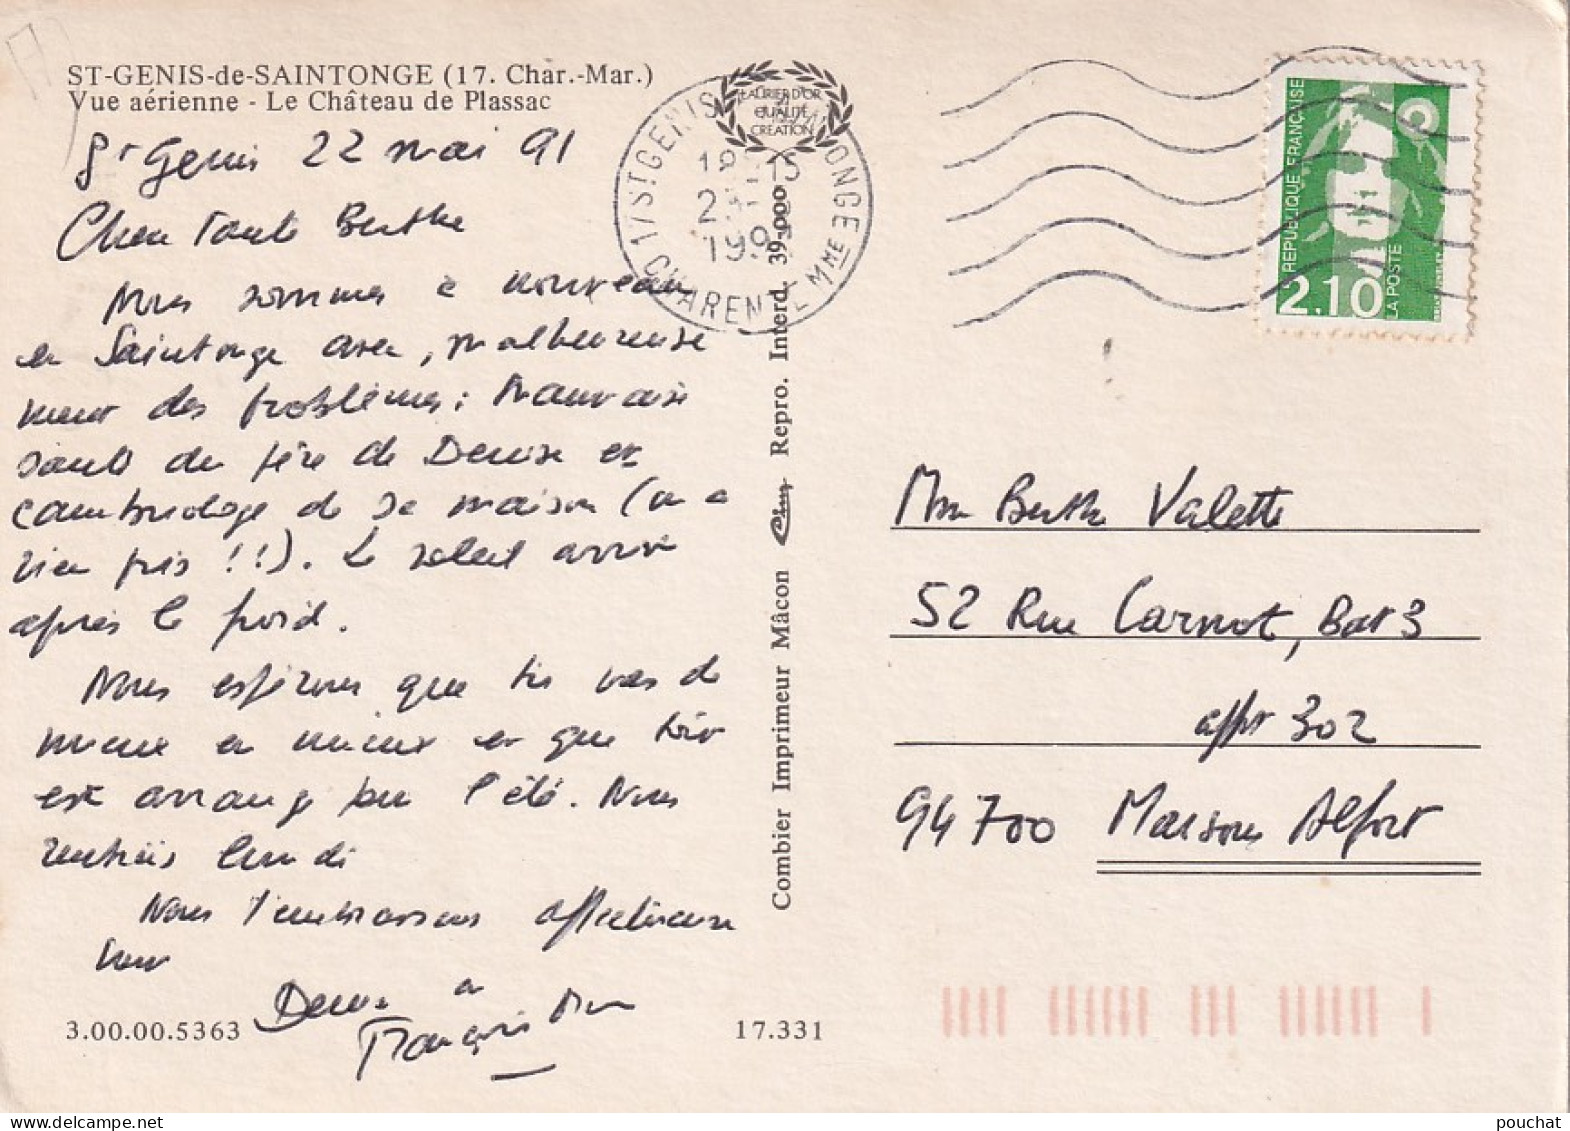 ST-GENIS-de-SAINTONGE (17. Char.-Mar.)
Vue aérienne - Le Château de Plassac
St Genis 22 mai 91
Chère Tante Berthe
Nous sommes à nouveau
en Saintonge avec, malheureuse
ment des problèmes : mauvaise
santé du père de Denise et
cambriolage de sa maison (on a
rien pris !!). Le soleil arrive
après le froid.
Nous espérons que tu vas de
mieux en mieux et que tout
est arrangé pour l'été. Nous
rentrons lundi
Nous t'embrassons affectueuse
ment
Denise
François
3.00.00.5363
17.331
Combier Imprimeur Mâcon Cim Repro. Interd. 39-000
LAURIER D'OR
QUALITÉ
CREATION
17 ST GENIS
CHARENTE MME
RÉPUBLIQUE FRANÇAISE
2.10
LA POSTE
Mme Berthe Valette
52 Rue Carnot, Bat 3
appt 302
94700 Maisons Alfort
pouchat